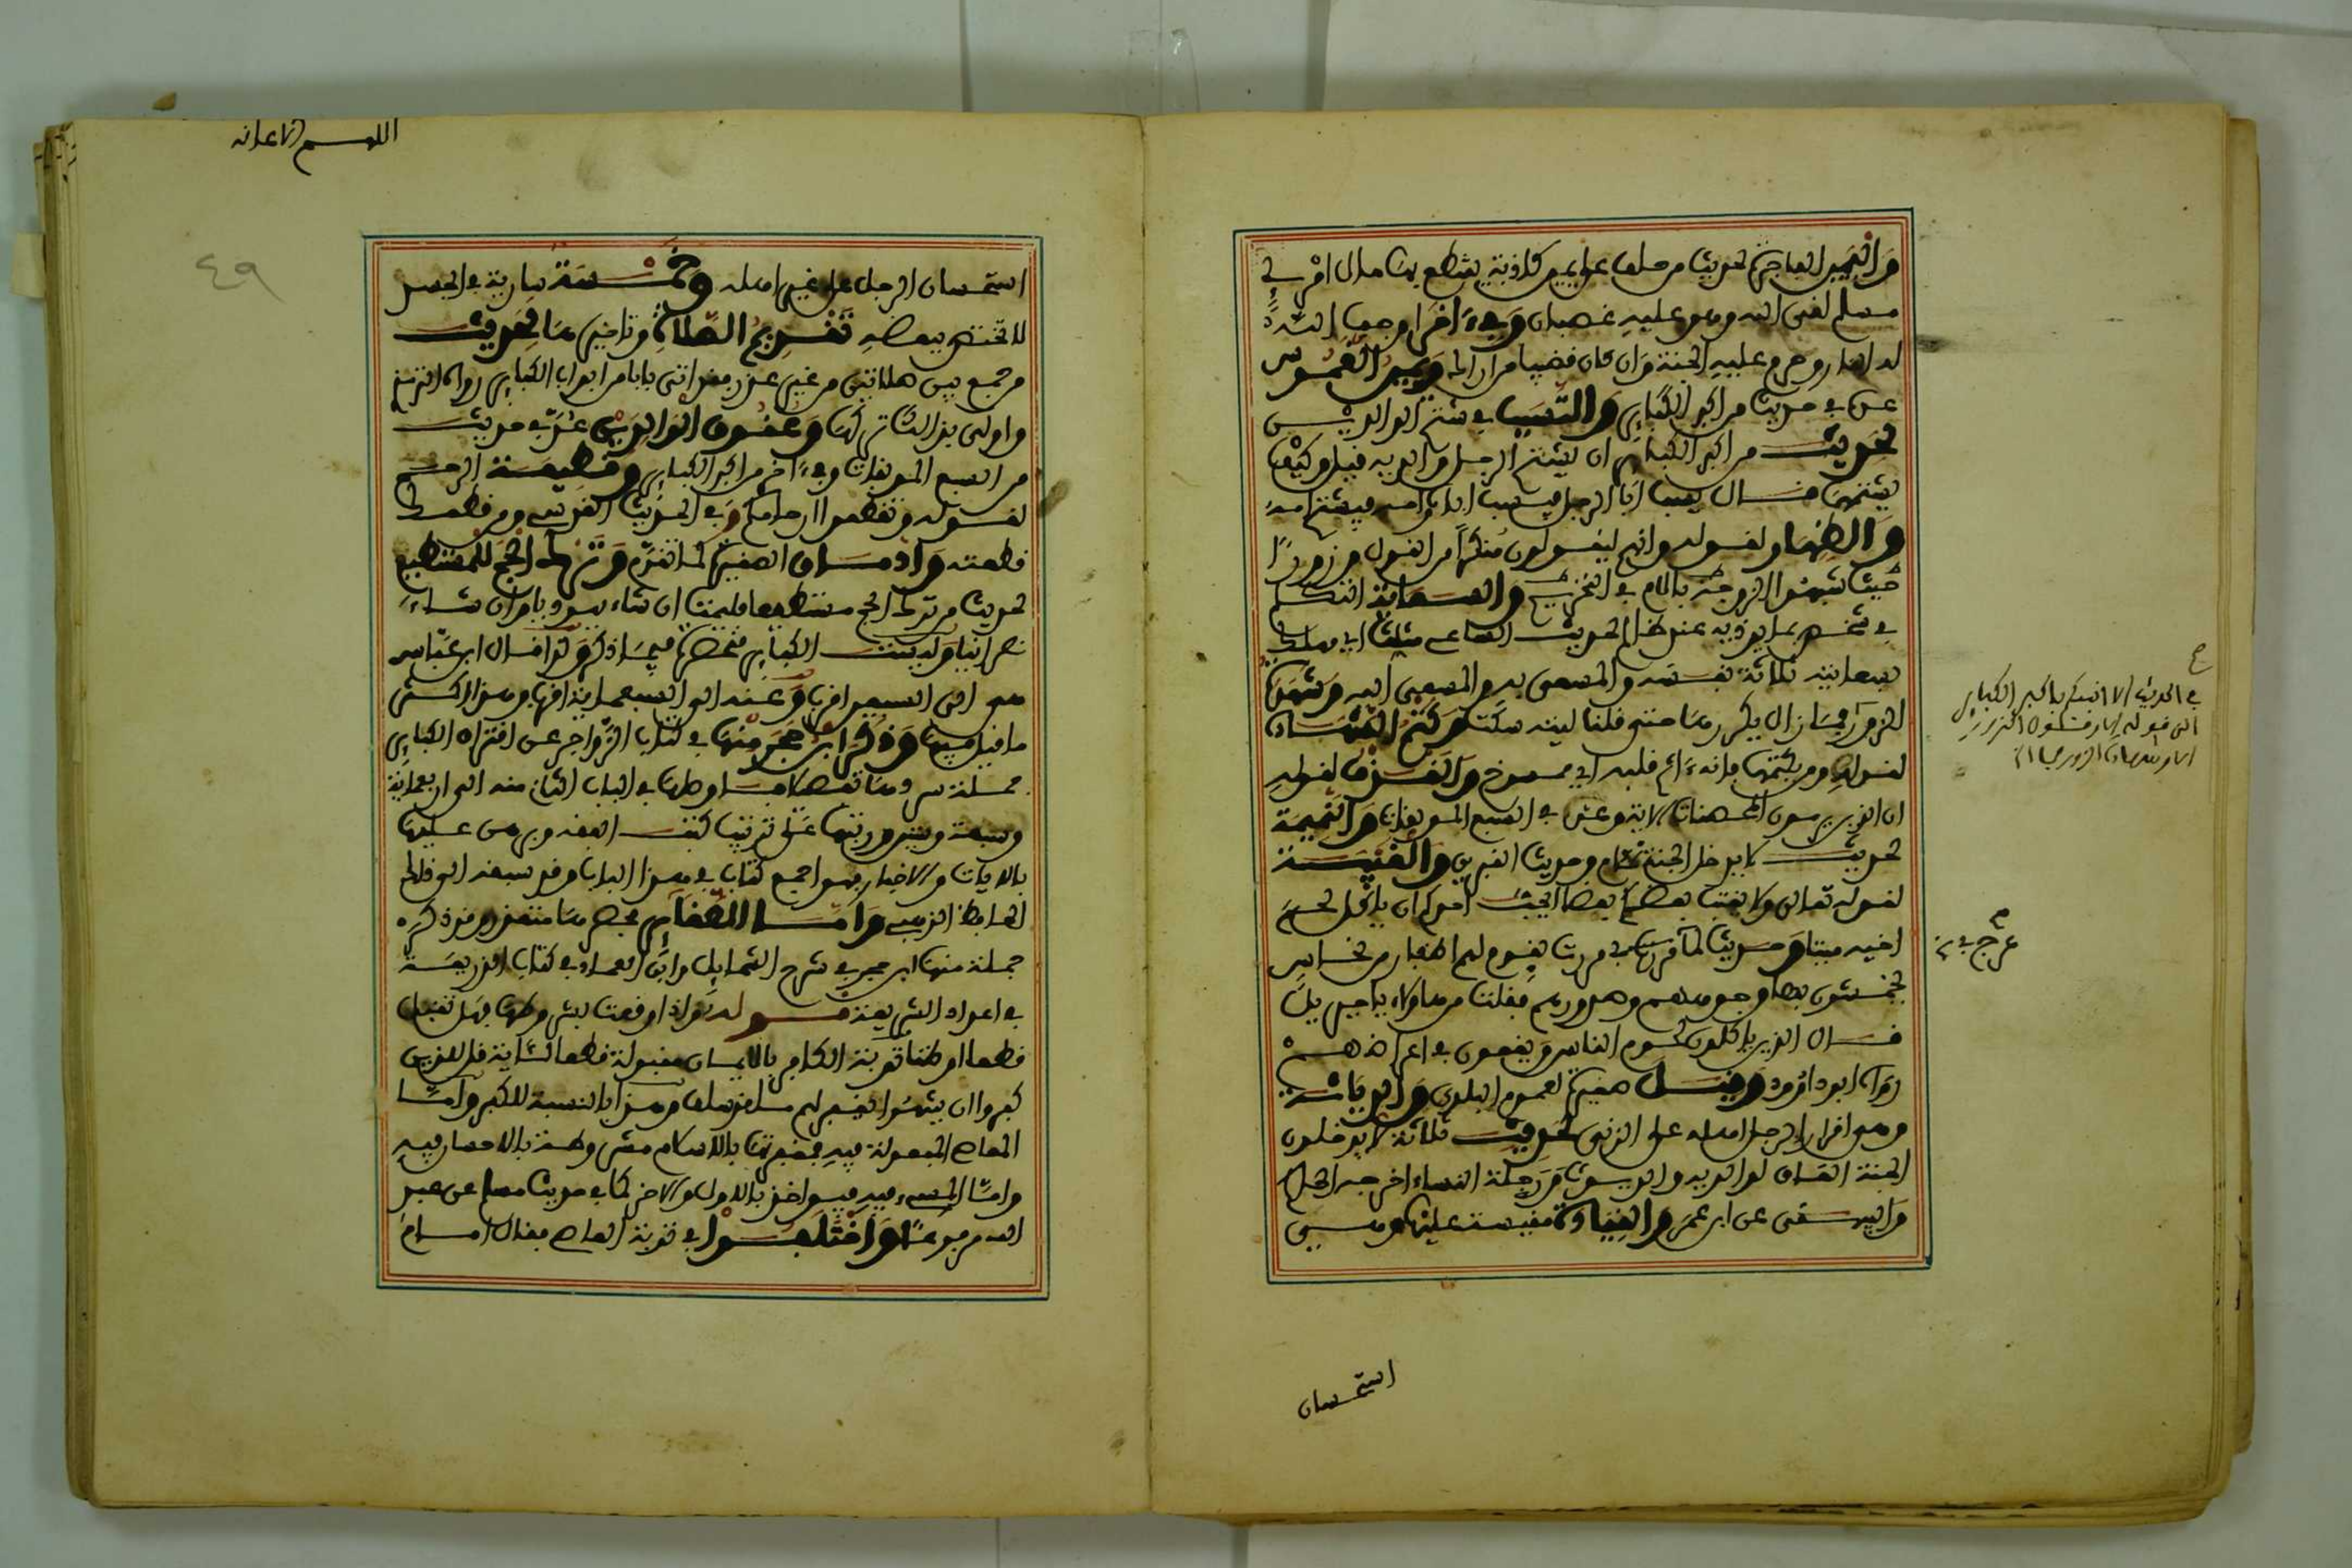 واليمين الفاجرة لحديث من حلف على يمين كاذبة يقتطع بها مال امرئ
مسلم لقي الله وهو عليه غضبان وفي ءاخر اوجب الله
له النار وحرم عليه الجنة وان كان قضيبا من اراك ويمين الغموس
عدت في حديث من اكبر الكبائر والتسبب في شتم الوالدين
لحديث من اكبر الكبائر ان يشتم الرجل والديه قيل وكيف
يشتمهما قال يسب ابا الرجل فيسب اباه وامه فيشتم امه
والظهار لقوله وانهم ليقولون منكرا من القول وزورا
حيث شبهوا الزوجة بالام في التحريم والسعاية التكلم
في شخص بما يوذيه عند ظالم لحديث الساعي مثلث اي مهلك
بسعايته ثلاثة نفسه والمسعى به والمسعى اليه وشهادة
الزور فما زال يكررها حتى قلنا ليته سكت وكتم الشهادة
لقوله ومن يكتمها فانه ءاثم قلبه اي ممسوخ والقذف لقوله
ان الذين يرمون المحصنات الاية وعد في السبع الموبقات والنميمة
لحديث لا يدخل الجنة نمام وحديث القبرين والغيبة
لقوله تعالى ولا يغتب بعضكم بعضا ايحب احدكم ان ياكل لحم
اخيه ميتا وحديث لما مررت بقوم لهم اظفار من نحاس
يخمشون بها وجوههم وصدورهم فقلت من هاولاء يا جبريل
قال الذين ياكلون لحوم الناس ويقعون في اعراضهم
رواه ابو داوود وقيل صغيرة لعموم البلوى والدياثة
وهو اقرار الرجل اهله على الزنى لحديث ثلاثة لا يدخلون
الجنة العاق لوالديه والديوث ورجلة النساء اخرجه الحاكم
والبيهقي عن ابن عمر والقيادة مقيسة عليها وهي
استحسان
في الحديث الا انبئكم باكبر الكبائر
الى قوله الا وقول الزور
الا وشهادة الزور
استحسان الرجل على غير اهله وخمسة سارية في الجسد
لا تختص ببعضه تقديم الصلاة وتاخيرها لحديث
من جمع بين صلاتين من غير عذر فقد اتى بابا من ابواب الكبائر رواه الترمذي
واولى بذلك تركها وعقوق الوالدين عد في حديث
من السبع الموبقات وفي ءاخر من اكبر الكبائر وقطيعة الرحم
لقوله وتقطعوا ارحامكم وفي الحديث القدسي ومن قطعك
قطعته وادمان الصغيرة كما تقدم وترك الحج للمستطيع
لحديث من ترك الحج مستطيعا فليمت ان شاء يهوديا وان شاء
نصرانيا وليست الكبائر منحصرة فيما ذكر ولذا قال ابن عباس
هي الى السبعين اقرب وعنه الى السبعمائة اقرب وهذا اكثر
ما قيل فيها وذكر ابن حجر منها في كتاب الزواجر عن اقتراف الكبائر
جملة اوصلها في الباب الثاني منه الى اربعمائة
وسبعة وستين ورتبها على ترتيب كتب الفقه وبرهن عليها
بالايات والاخبار فهو اجمع كتاب في هذا الباب وقد سبقه الى ذلك
الحافظ الذهبي واما الصغائر فحصرها متعذر وقد ذكر
جملة منها ابن حجر في شرح الشمايل وابن العماد في كتاب الذريعة
في اعداد الشريعة قوله واذا وقعت بشروطها فهل تقبل
قطعا او ظنا توبة الكافر بالايمان مقبولة قطعا لاية قل للذين
كفروا ان ينتهوا يغفر لهم ما قد سلف وهذا بالنسبة للكفر واما
المعاصي المفعولة فيه فمغفرتها بالاسلام مشروطة بالاحسان فيه
واما المسيء فيه فيواخذ بالاول والاخر كما في حديث مسلم عن عبد
الله مرفوعا واختلفوا في توبة العاصي فقال امام
اللهم الاعانه
٤٩